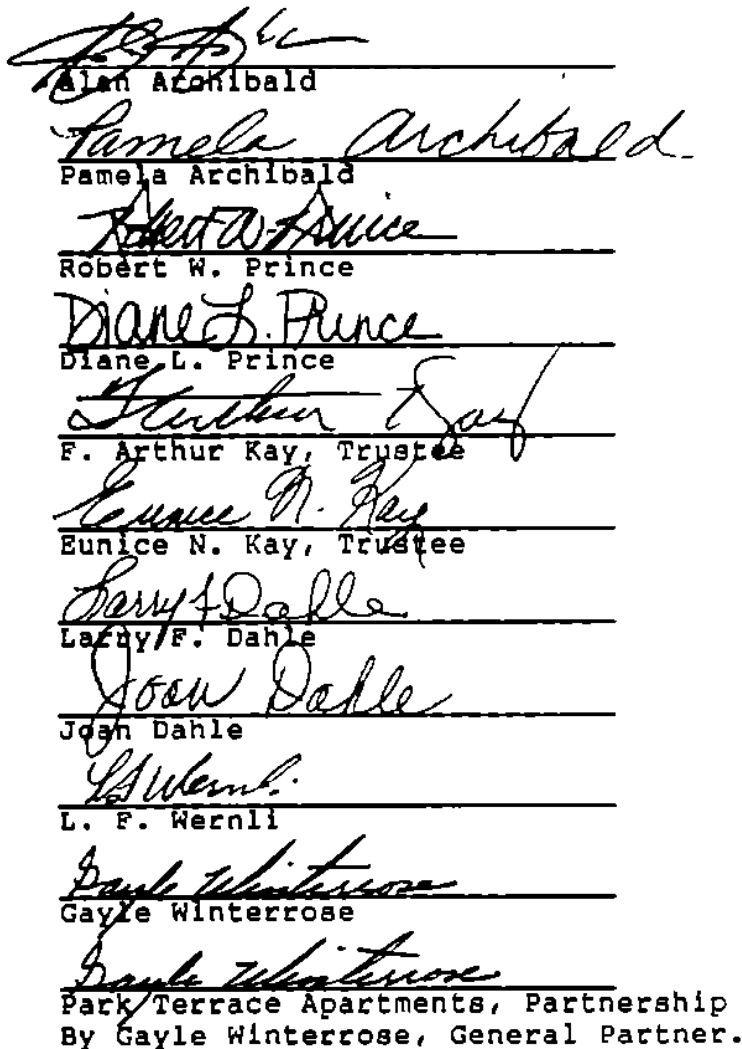 Alan Archibald
Pamela Archibald
Pamela Archibald
Robert W. Prince
Robert W. Prince
Diane L. Prince
Diane L. Prince
F Arthur Kay
F. Arthur Kay, Trustee
Eunice N. Kay
Eunice N. Kay, Trustee
Larry F Dahle
Larry F. Dahle
Joan Dahle
Joan Dahle
L F Wernli
L. F. Wernli
Gayle Winterrose
Gayle Winterrose
Gayle Winterrose
Park Terrace Apartments, Partnership
By Gayle Winterrose, General Partner.